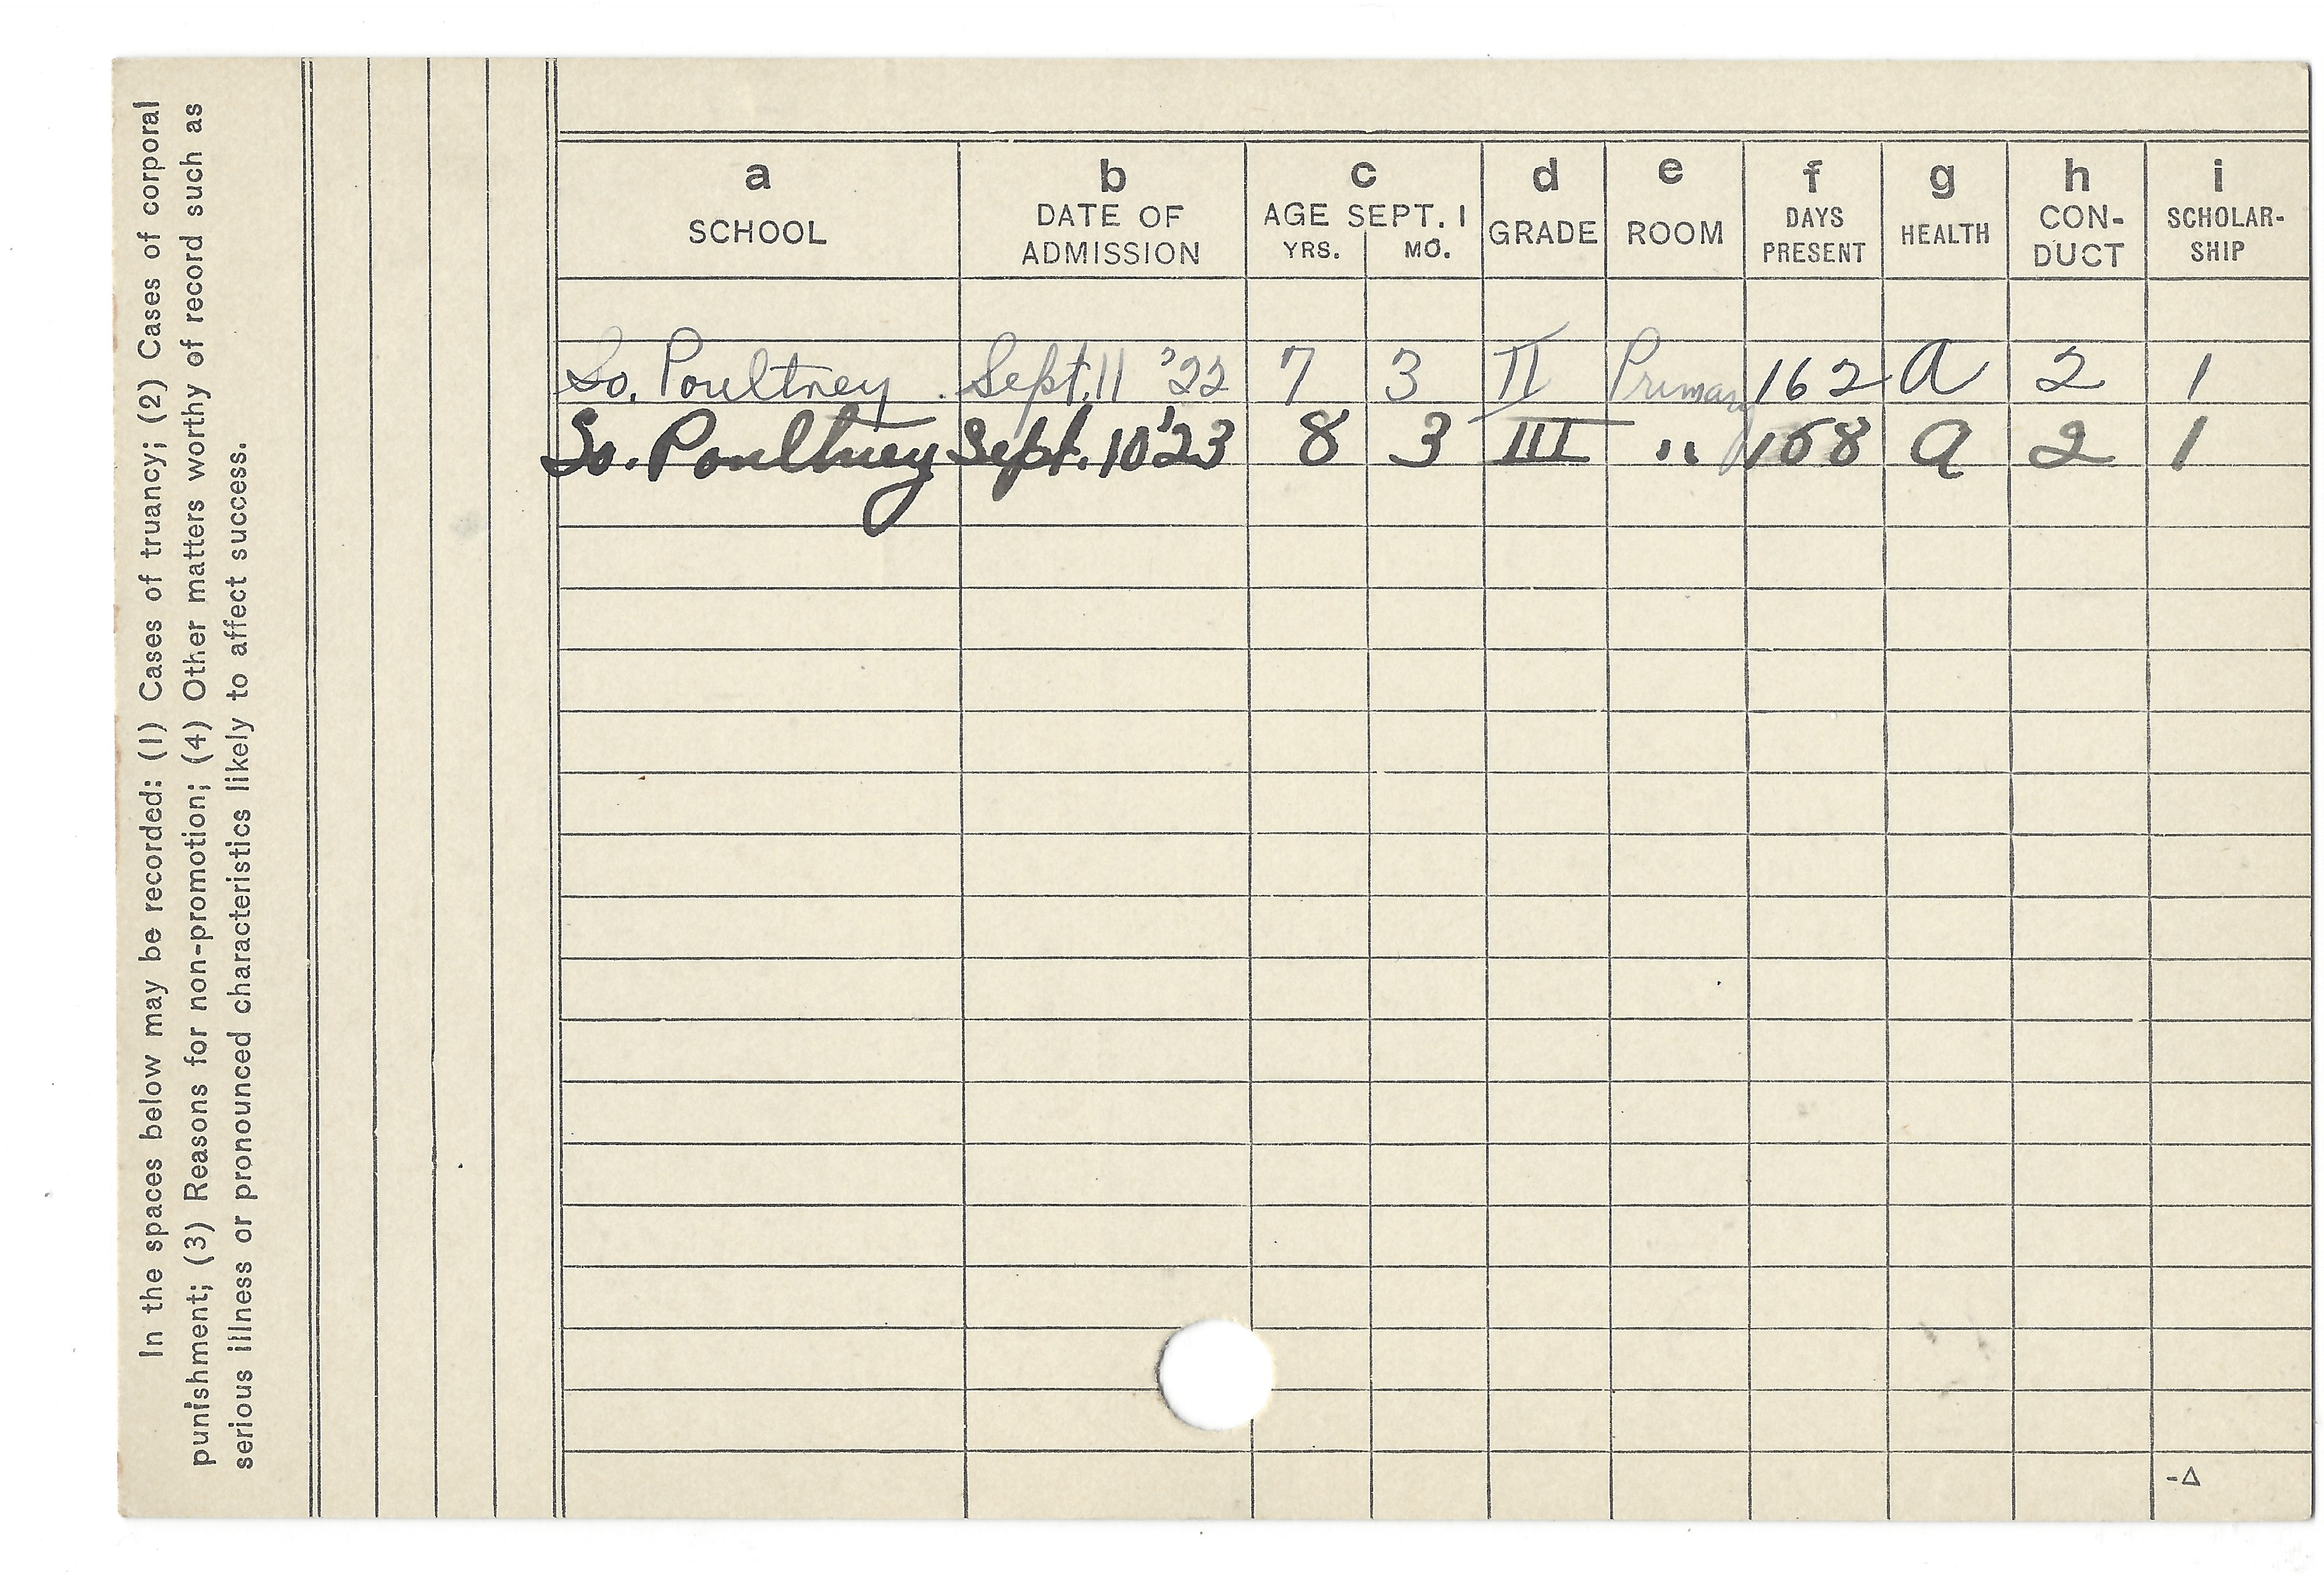 In the spaces below may be recorded: (1) Cases of truancy; (2) Cases of corporal
punishment; (3) Reasons for non-promotion; (4) Other matters worthy of record such as
serious illness or pronounced characteristics likely to affect success.
a b c d e f g h i
SCHOOL DATE OF ADMISSION AGE SEPT. 1 YRS. MO. GRADE ROOM DAYS PRESENT HEALTH CON-DUCT SCHOLAR-SHIP
So. Poultney Sept. 11 '22 7 3 II Primary 162 a 2 1
So. Poultney Sept. 10 '23 8 3 III " a 2 1
-Δ